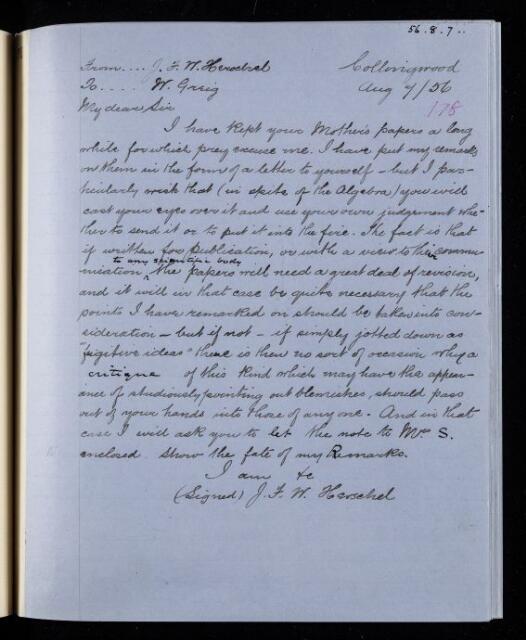 56.8.7..
From.... J. F. W. Herschel Collingwood
To..... W. Greig Aug 7/56
178
My dear Sir
I have kept your Mother's papers a long
while for which pray excuse me. I have put my remarks
on them in the form of a letter to yourself - but I par-
ticularly wish that (in spite of the Algebra) you will
cast your eye over it and use your own judgement whe-
ther to send it or to put it into the fire. The fact is that
if written for publication, or with a view to their commu-
to any scientific body
nication ^ the papers will need a great deal of revision,
and it will in that case be quite necessary that the
points I have remarked on should be taken into con-
sideration - but if not - if simply jotted down as
"fugitive ideas" there is then no sort of occasion why a
critique of this kind which may have the appear-
ance of studiously pointing out blemishes, should pass
out of your hands into those of any one. And in that
case I will ask you to let the note to Mrs S.
enclosed show the fate of my Remarks.
I am &c
(Signed) J. F. W. Herschel